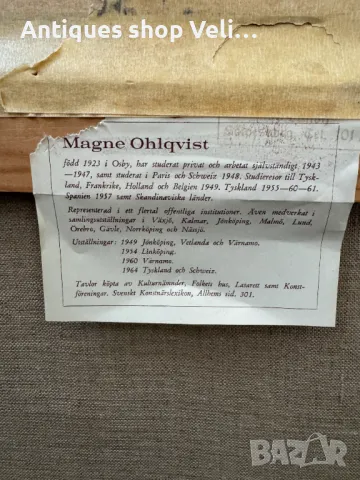 Antiques shop Veli...
Magne Ohlqvist
född 1923 i Osby, har studerat privat och arbetat självständigt 1943
—1947, samt studerat i Paris och Schweiz 1948. Studieresor till Tysk-
land, Frankrike, Holland och Belgien 1949. Tyskland 1955—60—61.
Spanien 1957 samt Skandinaviska länder.
Representerad i ett flertal offentliga institutioner. Även medverkat i
samlingsutställningar i Växjö, Kalmar, Jönköping, Malmö, Lund,
Örebro, Gävle, Norrköping och Nässjö.
Utställningar: 1949 Jönköping, Vetlanda och Värnamo.
1954 Linköping.
1960 Värnamo.
1964 Tyskland och Schweiz.
Tavlor köpta av Kulturnämnder, Folkets hus, Lasarett samt Konst-
föreningar. Svenskt Konstnärslexikon, Allhems sid. 301.
BAZAR